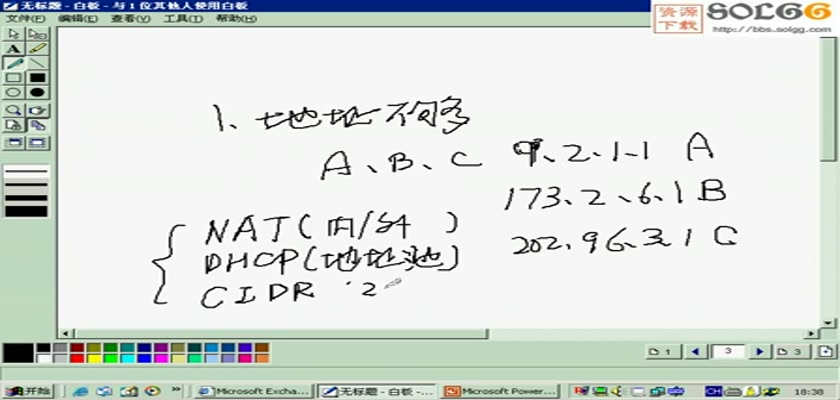 无标题 - 白板 - 与 1 位其他人使用白板
文件(F) 编辑(E) 查看(V) 工具(T) 帮助(H)
资源下载 SOLGG
http://bbs.solgg.com
1、地址不够多
A、B、C 9.2.1.1 A
173.2.6.1 B
NAT(内/外)
202.96.3.1 C
DHCP(地址池)
CIDR 2
1 3 3
开始 Microsoft Excha... 无标题 - 白板 -... Microsoft Power... CH 18:38